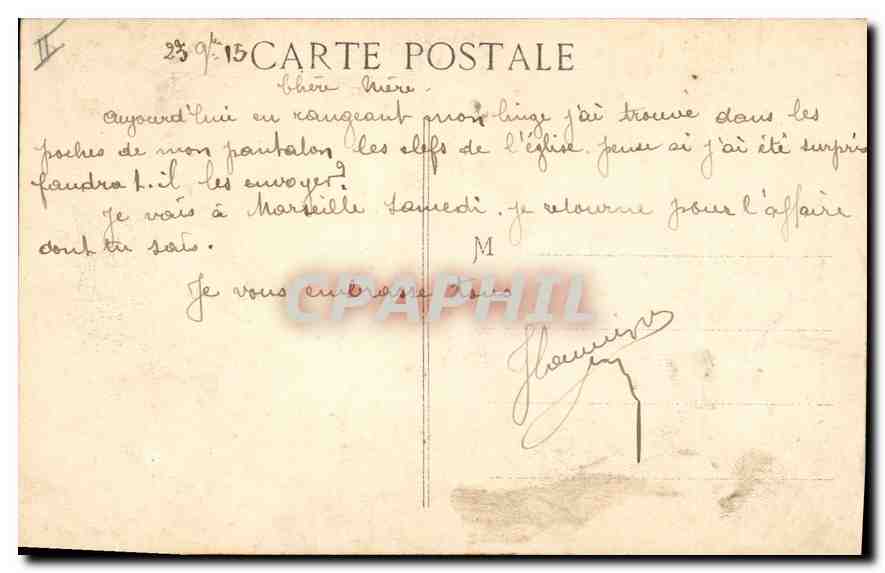 II
23 9bre 15 CARTE POSTALE
Chère Mère.
Aujourd'hui en rangeant mon linge j'ai trouvé dans les
poches de mon pantalon les clefs de l'église. pense si j'ai été surpris
faudra t-il les envoyer?
Je vais à Marseille Samedi. je retourne pour l'affaire
dont tu sais.
M
Je vous embrasse tous
CPAPHIL